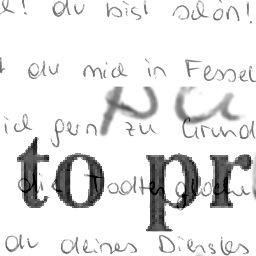 ! du bist schön!
du mich in Fessel
ich gern zu Grund
to pr
die Todtenglocke
du deines Dienstes